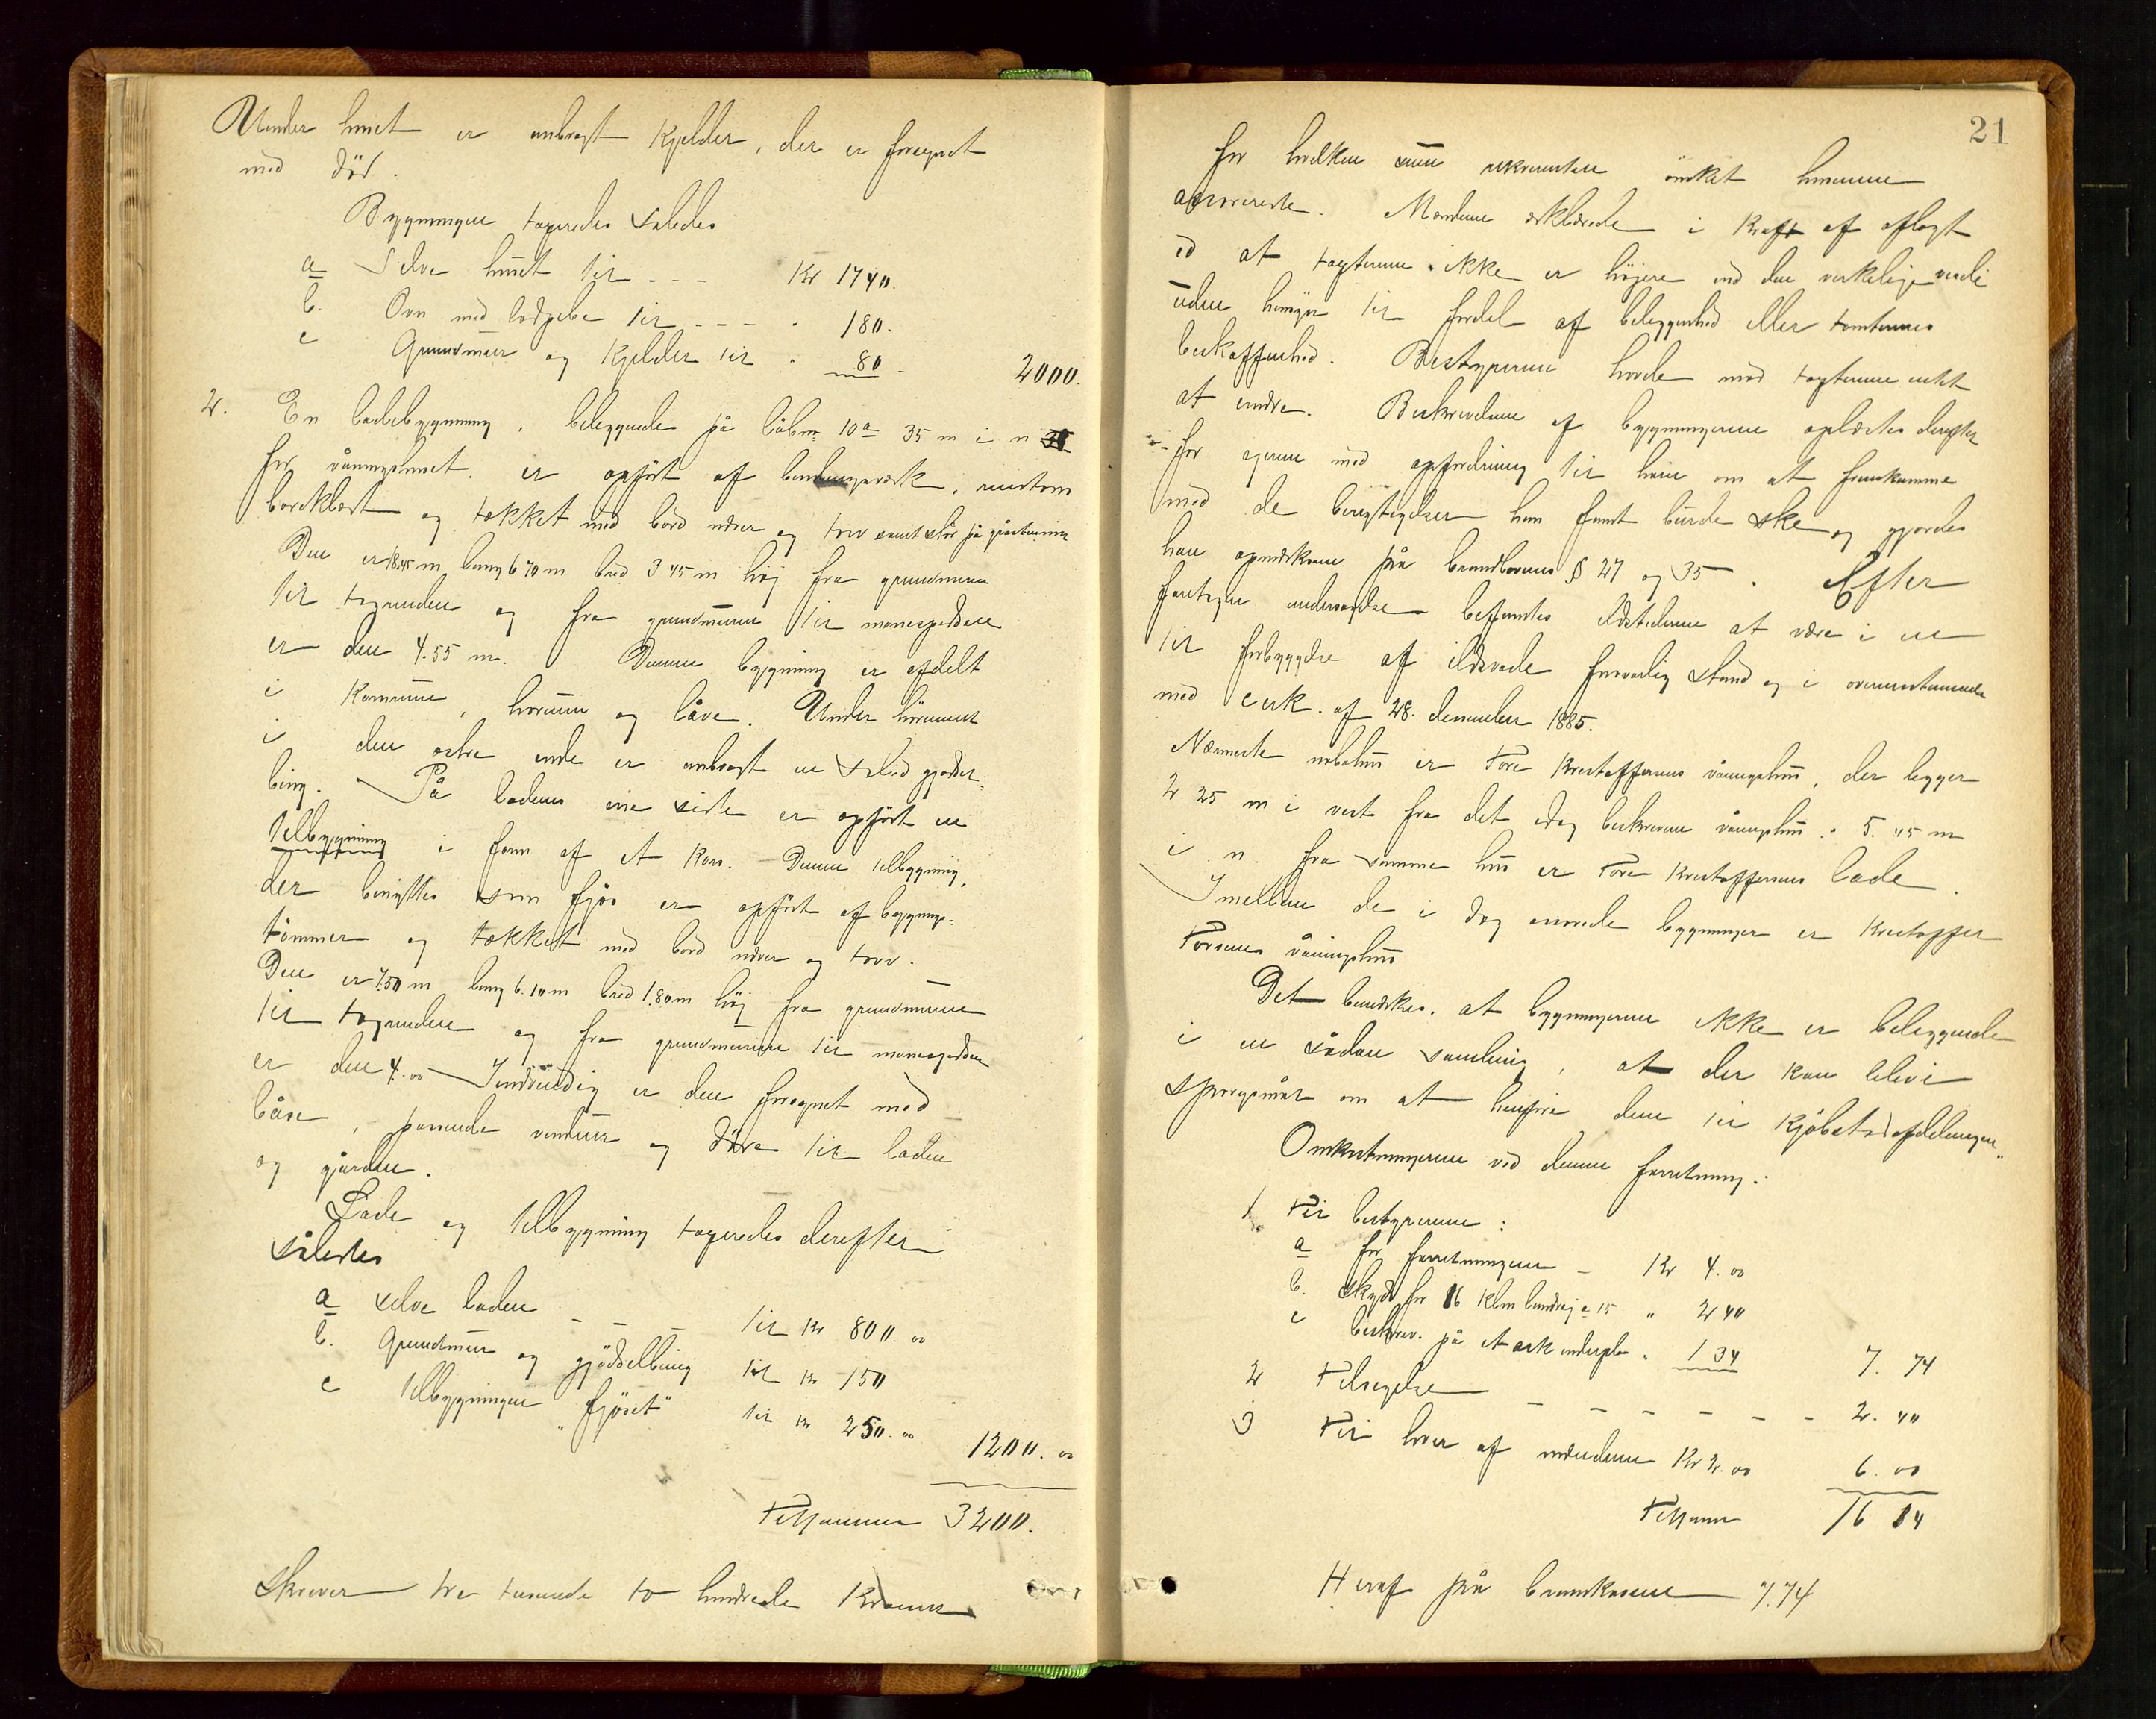 Under huset er anbragt kjelder, der er forsynet
med dör.
Bygningen taxeredes således
a Selve huset til - - - Kr 1740.
b. Ovn med tilbehør til - - - " 180.
c Grundmur og kjelder til " 80 - 2000.
2. En ladebygning, beliggende på löbnr 10a 35 m i n
for våningshuset, er opfört af bindingsverk, udvendig
bordklædt og tækket med bord næver og torv samt
Den er 18.45 m lang 6 70 m bred 3 45 m höj fra grundmuren
til tagrenden og fra grundmuren til mønespidsen
er den 4.55 m. Denne bygning er afdelt
i kornrum, hörum og låve. Under hörummet
i den østre ende er anbragt en solid gjødsel-
bing. På ladens ene side er opfört en
tilbygning i form af et kors. Denne tilbygning,
der benyttes som fjös er opfört af bygnings-
tömmer og tækket med bord næver og torv.
Den er 7.50 m lang 6.10 m bred 1.80 m höj fra grundmuren
til tagrenden og fra grundmuren til mønespidsen
er den 4.00 Indvendig er den forsynet med
båse, passende vinduer og döre til laden
og gården.
Lade og tilbygning taxeredes derefter
således
a selve laden - - - til kr 800.00
b. Grundmur og gjödselbing til kr 150
c tilbygningen "fjöset" til kr 250.00 1200.00
Tilsammen 3200.
Skriver tre tusinde to hundrede Kroner
21
for hvilken sum rekvirenten önsket husene
assurerede. Mændene erklærede i kraft af aflagt
ed at taxterne ikke er höjere end den verkelige verdi
uden hensyn til fordel af beliggenhed eller tomternes
beskaffenhed. Bestyreren havde mod taxterne intet
at erindre. Beskrivelsen af bygningerne oplæstes derefter
for ejeren med opfordring til ham om at fremkomme
med de berigtigelser han fandt burde ske og gjordes
han opmærksom på brandlovens § 27 og 35. Efter
foretagen undersøgelse befandtes ildstederne at være i en
til forbyggelse af ildsvade forsvarlig stand og i overensstemmelse
med cirk. af 28. december 1885.
Nærmeste nabohus er Tore Kristoffersens våningshus, der ligger
2.25 m i vest fra det idag beskrevne våningshus. 5.45 m
i n. fra samme hus er Tore Kristoffersens lade.
Imellem de i dag assurerede bygninger er Kristoffer
Torsens våningshus
Det bemærkes, at bygningerne ikke er beliggende
i en sådan samling, at der kan blive
spørgsmål om at henføre dem til kjøbstadafdelingen.
Omkostningerne ved denne forretning:
1. Til bestyreren:
a for forretningen - Kr 4.00
b. skyds for 16 klm landvej a 15 " 2 40
c beskriv. på et ark 1 34 7. 74
2 Tilsigelse - - - - - - 2. 40
3 Til hver af mændene Kr 2.00 6.00
Tilsamm 16 14
Heraf på brandkassen 7.74